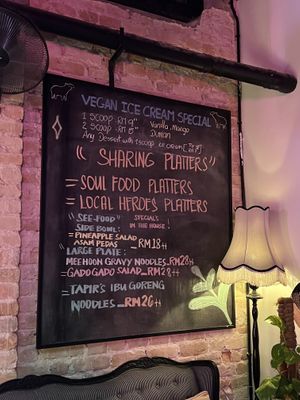 VEGAN ICE CREAM SPECIAL
1 SCOOP - RM 9++ Vanilla, Mango
2 SCOOP - RM 15++ Durian
Any Dessert with 1 scoop ice cream
"SHARING PLATTERS"
= SOUL FOOD PLATTERS
= LOCAL HEROES PLATTERS
"SEE-FOOD" SPECIAL'S
SIDE BOWL: IN THE HOUSE!
= PINEAPPLE SALAD
ASAM PEDAS _ RM 18++
LARGE PLATE:
MEEHOON GRAVY NOODLES _ RM 28++
= GADO GADO SALAD _ RM 29++
= TAPIR'S IBU GORENG
NOODLES _ RM 26++